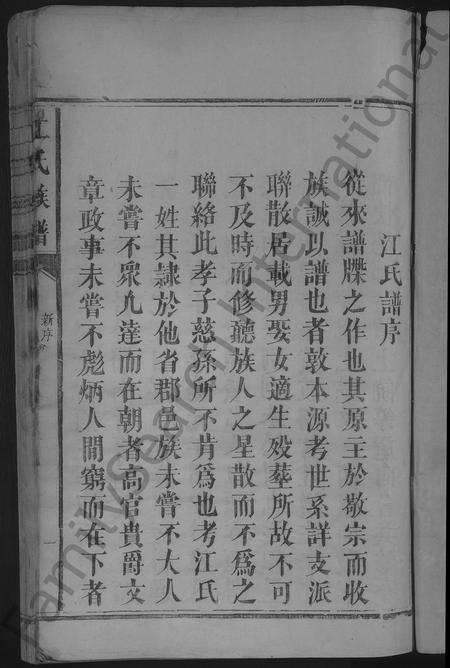 江氏譜序
從來譜牒之作也其原主於敬宗而收
族誠以譜也者敦本源考世系詳支派
聯散居載男娶女適生殁塟所故不可
不及時而修聽族人之星散而不爲之
聯絡此孝子慈孫所不肯爲也考江氏
一姓其隷於他省郡邑族未嘗不大人
未嘗不衆凢達而在朝者高官貴爵文
章政事未嘗不彪炳人間窮而在下者
江氏族譜
新序
一
FamilySearch International